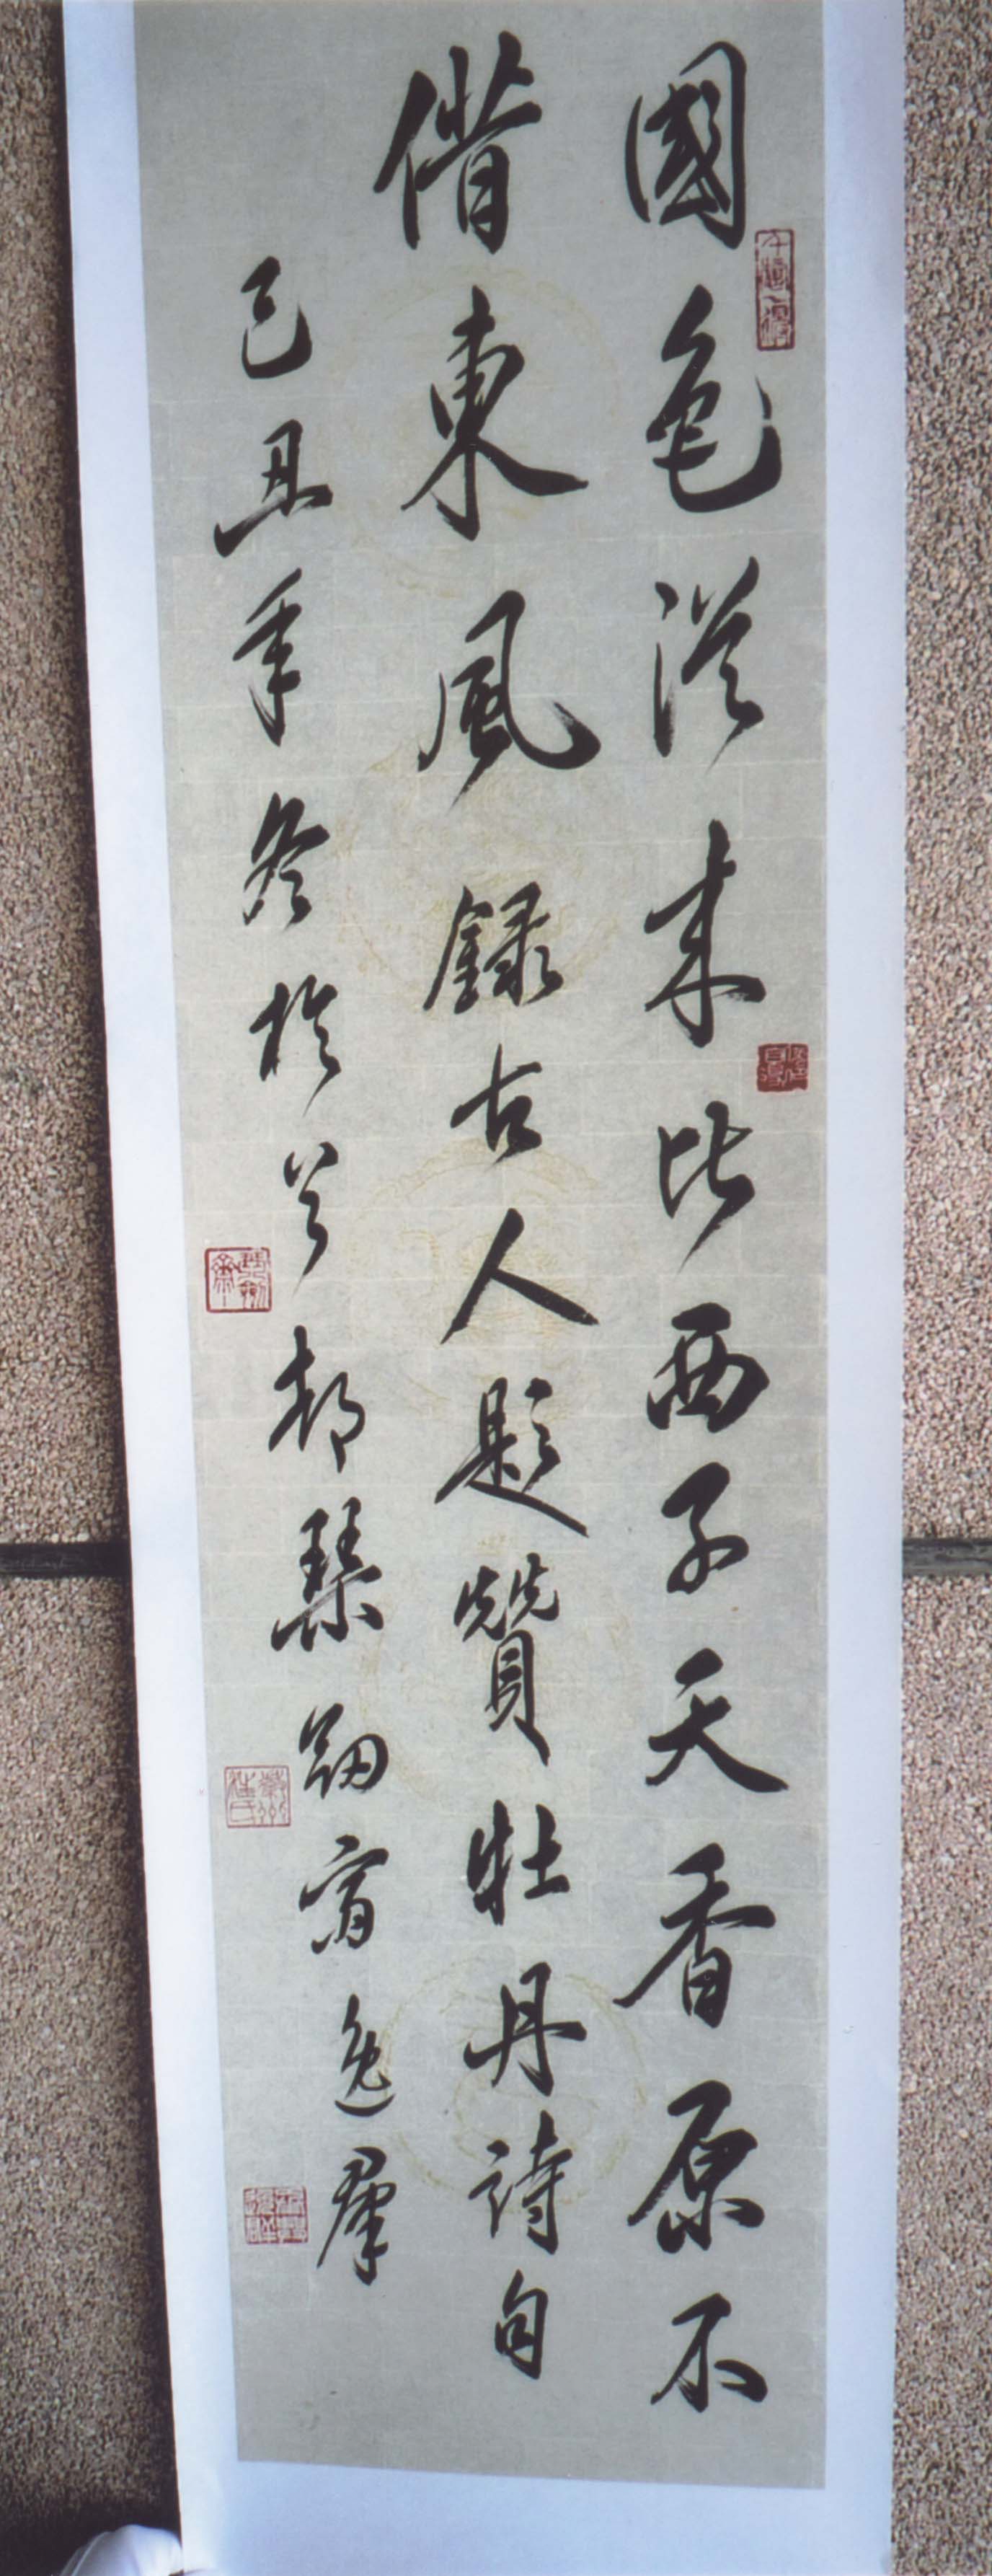 國色從來比西子天香原不
借東風錄古人題贊牡丹詩句
己丑年冬於首都琴劍齋逸群